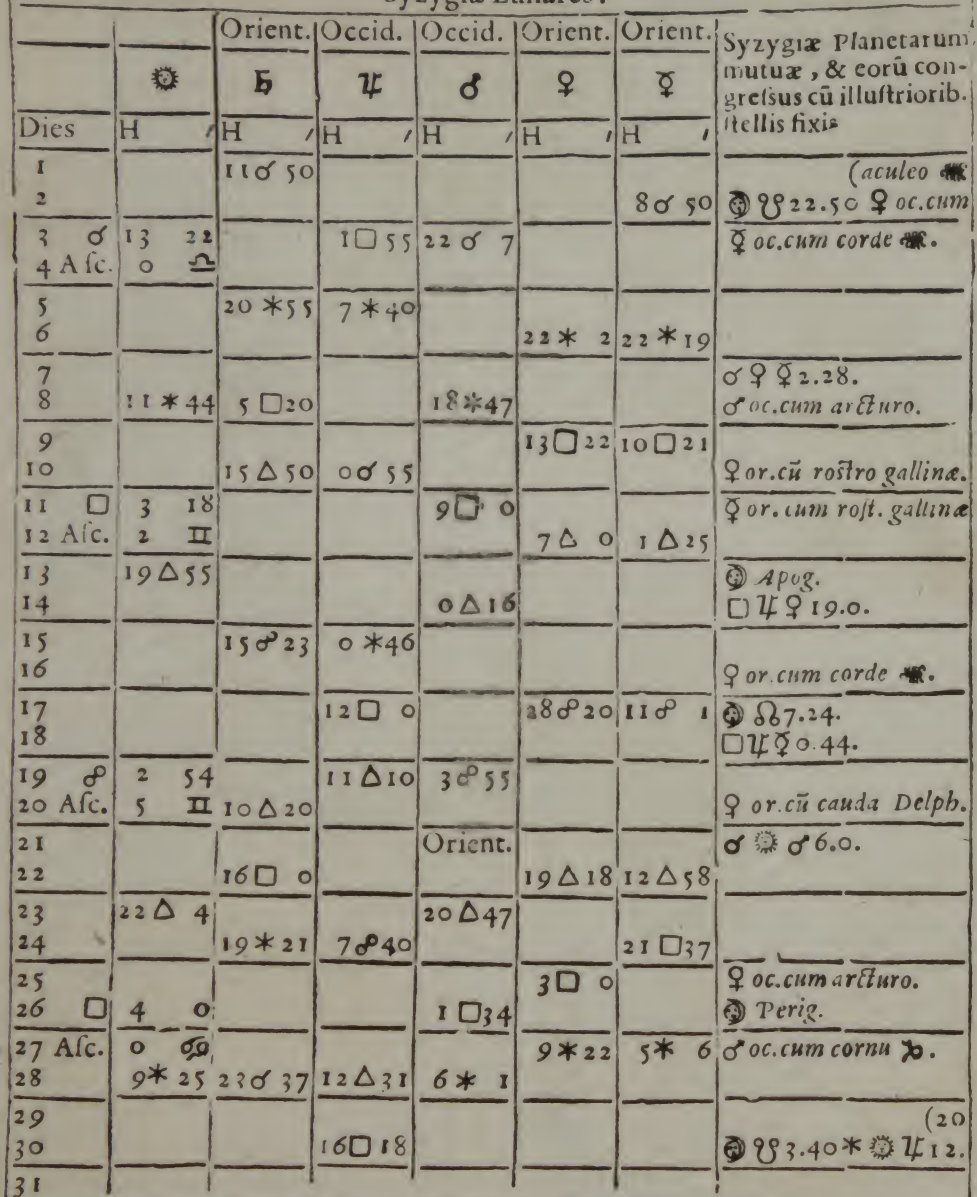 Orient. Occid. Occid. Orient. Orient. Syzygiæ Planetarum
☉ ♄ ♃ ♂ ♀ ☿ mutuæ, & eorū con-
greſsus cū illuſtriorib.
Dies H ′ H ′ H ′ H ′ H ′ H ′ ſtellis fixis
1 11 ☌ 50 (aculeo ♏
2 8 ☌ 50 ☽ ☋ 22.50 ♀ oc.cum
3 ☌ 13 22 1 □ 55 22 ☌ 7 ☿ oc.cum corde ♏.
4 Aſc. 0 ♎
5 20 ✶ 55 7 ✶ 40
6 22 ✶ 2 22 ✶ 19
7 ☌ ♀ ☿ 2.28.
8 11 ✶ 44 5 □ 20 18 ✶ 47 ♂ oc.cum arcturo.
9 13 □ 22 10 □ 21
10 15 △ 50 0 ☌ 55 ♀ or.cū roſtro gallinæ.
11 □ 3 18 9 □ 0 ☿ or.cum roſt. gallinæ
12 Aſc. 2 ♊ 7 △ 0 1 △ 25
13 19 △ 55 ☽ Apog.
14 0 △ 16 □ ♃ ♀ 19.0.
15 15 ☍ 23 0 ✶ 46
16 ♀ or.cum corde ♏.
17 12 □ 0 28 ☍ 20 11 ☍ 1 ☽ ☊ 7.24.
18 □ ♃ ☿ 0.44.
19 ☍ 2 54 11 △ 10 3 ☍ 55
20 Aſc. 5 ♊ 10 △ 20 ♀ or.cū cauda Delph.
21 Orient. ☌ ☉ ♂ 6.0.
22 16 □ 0 19 △ 18 12 △ 58
23 22 △ 4 20 △ 47
24 19 ✶ 21 7 ☍ 40 21 □ 37
25 3 □ 0 ♀ oc.cum arcturo.
26 □ 4 0 1 □ 34 ☽ Perig.
27 Aſc. 0 ♋ 9 ✶ 22 5 ✶ 6 ♂ oc.cum cornu ♑.
28 9 ✶ 25 23 ☌ 37 12 △ 31 6 ✶ 1
29 (20
30 16 □ 18 ☽ ☋ 3.40 ✶ ☉ ♃ 12.
31